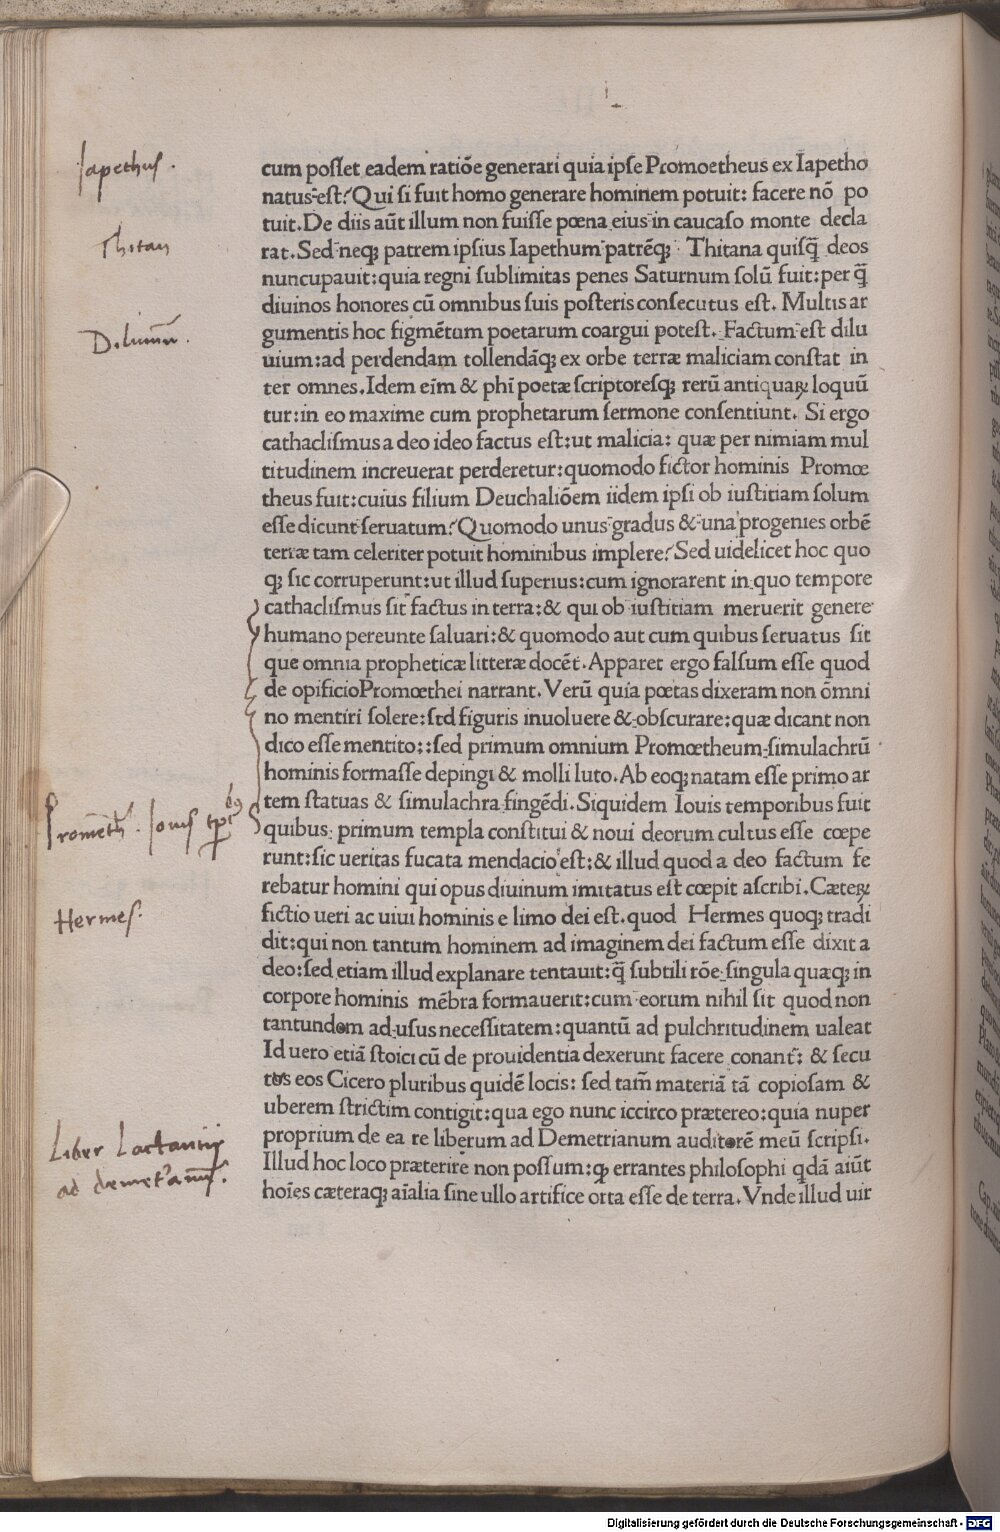 Iapethus.
Thitan
Diluuiū.
Prometh'. Iouis tpr̄ib9
Hermes.
Liber Lactantij
ad demet'anū.
cum posset eadem ratiōe generari quia ipse Promoetheus ex Iapetho
natus est? Qui si fuit homo generare hominem potuit: facere nō po
tuit. De diis aūt illum non fuisse pœna eius in caucaso monte decla
rat. Sed neqꝫ patrem ipsius Iapethum patrēqꝫ Thitana quisq̄ deos
nuncupauit: quia regni sublimitas penes Saturnum solū fuit: per q̄
diuinos honores cū omnibus suis posteris consecutus est. Multis ar
gumentis hoc figmētum poetarum coargui potest. Factum est dilu
uium: ad perdendam tollendāqꝫ ex orbe terræ maliciam constat in
ter omnes. Idem eīm & phī poetæ scriptoresqꝫ rerū antiquaꝝ loquū
tur: in eo maxime cum prophetarum sermone consentiunt. Si ergo
cathaclismus a deo ideo factus est: ut malicia: quæ per nimiam mul
titudinem increuerat perderetur: quomodo fictor hominis Promœ
theus fuit: cuius filium Deuchaliōem iidem ipsi ob iustitiam solum
esse dicunt seruatum? Quomodo unus gradus & una progenies orbē
terræ tam celeriter potuit hominibus implere? Sed uidelicet hoc quo
qꝫ sic corruperunt: ut illud superius: cum ignorarent in quo tempore
cathaclismus sit factus in terra: & qui ob iustitiam meruerit genere
humano pereunte saluari: & quomodo aut cum quibus seruatus sit
que omnia propheticæ litteræ docēt. Apparet ergo falsum esse quod
de opificio Promœthei narrant. Verū quia pœtas dixeram non ōmni
no mentiri solere: sed figuris inuoluere & obscurare: quæ dicant non
dico esse mentito:: sed primum omnium Promœtheum simulachrū
hominis formasse depingi & molli luto. Ab eoqꝫ natam esse primo ar
tem statuas & simulachra fingēdi. Siquidem Iouis temporibus fuit
quibus primum templa constitui & noui deorum cultus esse cœpe
runt: sic ueritas fucata mendacio est: & illud quod a deo factum fe
rebatur homini qui opus diuinum imitatus est cœpit ascribi. Cæteꝝ
fictio ueri ac uiui hominis e limo dei est. quod Hermes quoqꝫ tradi
dit: qui non tantum hominem ad imaginem dei factum esse dixit a
deo: sed etiam illud explanare tentauit: q̄ subtili rōe singula quæqꝫ in
corpore hominis mēbra formauerit: cum eorum nihil sit quod non
tantundem ad usus necessitatem: quantū ad pulchritudinem ualeat
Id uero etiā stoici cū de prouidentia dexerunt facere conant̄: & secu
tus eos Cicero pluribus quidē locis: sed tam̄ materiā tā copiosam &
uberem strictim contigit: qua ego nunc iccirco prætereo: quia nuper
proprium de ea re liberum ad Demetrianum auditorē meū scripsi.
Illud hoc loco præterire non possum: ꝙ errantes philosophi qdā aiūt
hoīes cæteraqꝫ aīalia sine ullo artifice orta esse de terra. Vnde illud uir
Digitalisierung gefördert durch die Deutsche Forschungsgemeinschaft - DFG